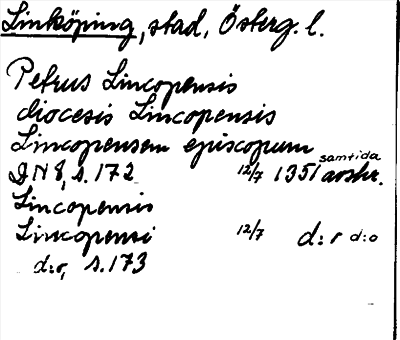 Linköping, stad, Österg. l.
Petrus Lincopensis
diocesis Lincopensis
Lincopensem episcopum
DN 8, s. 172 12/7 1351 samtida avskr.
Lincopensis
Lincopensi 12/7 d:r d:o
d:o, s. 173